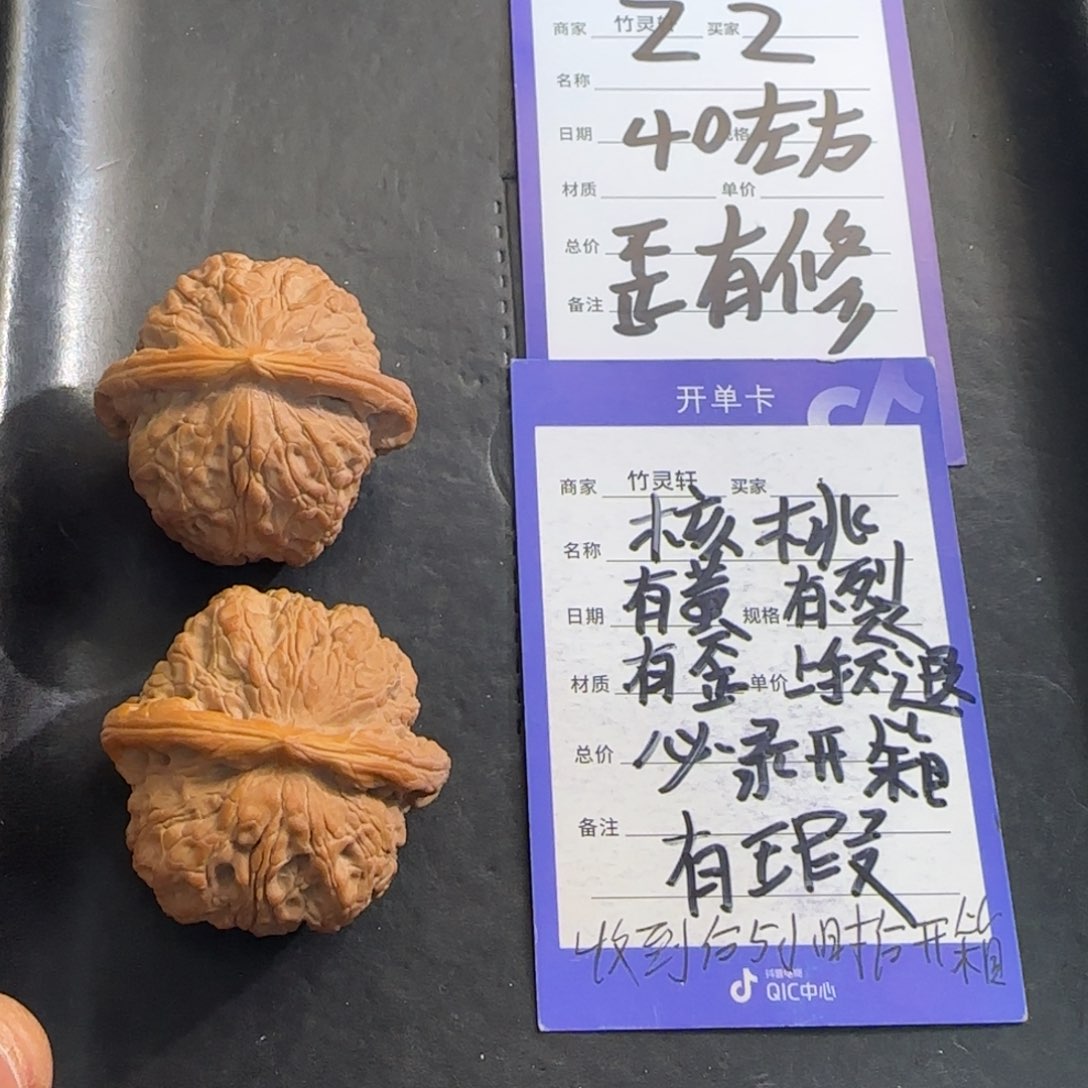 商家 竹灵 买家
Z Z
名称
日期 40左右 格
材质 单价
总价 歪有修
备注
开单卡
商家 竹灵轩 买家
名称 核桃
日期 有黄 规格 有裂
材质 有歪 单价 上车不退
总价 必录开箱
备注 有瑕
收到后5小时后开箱
抖音电商
QIC中心